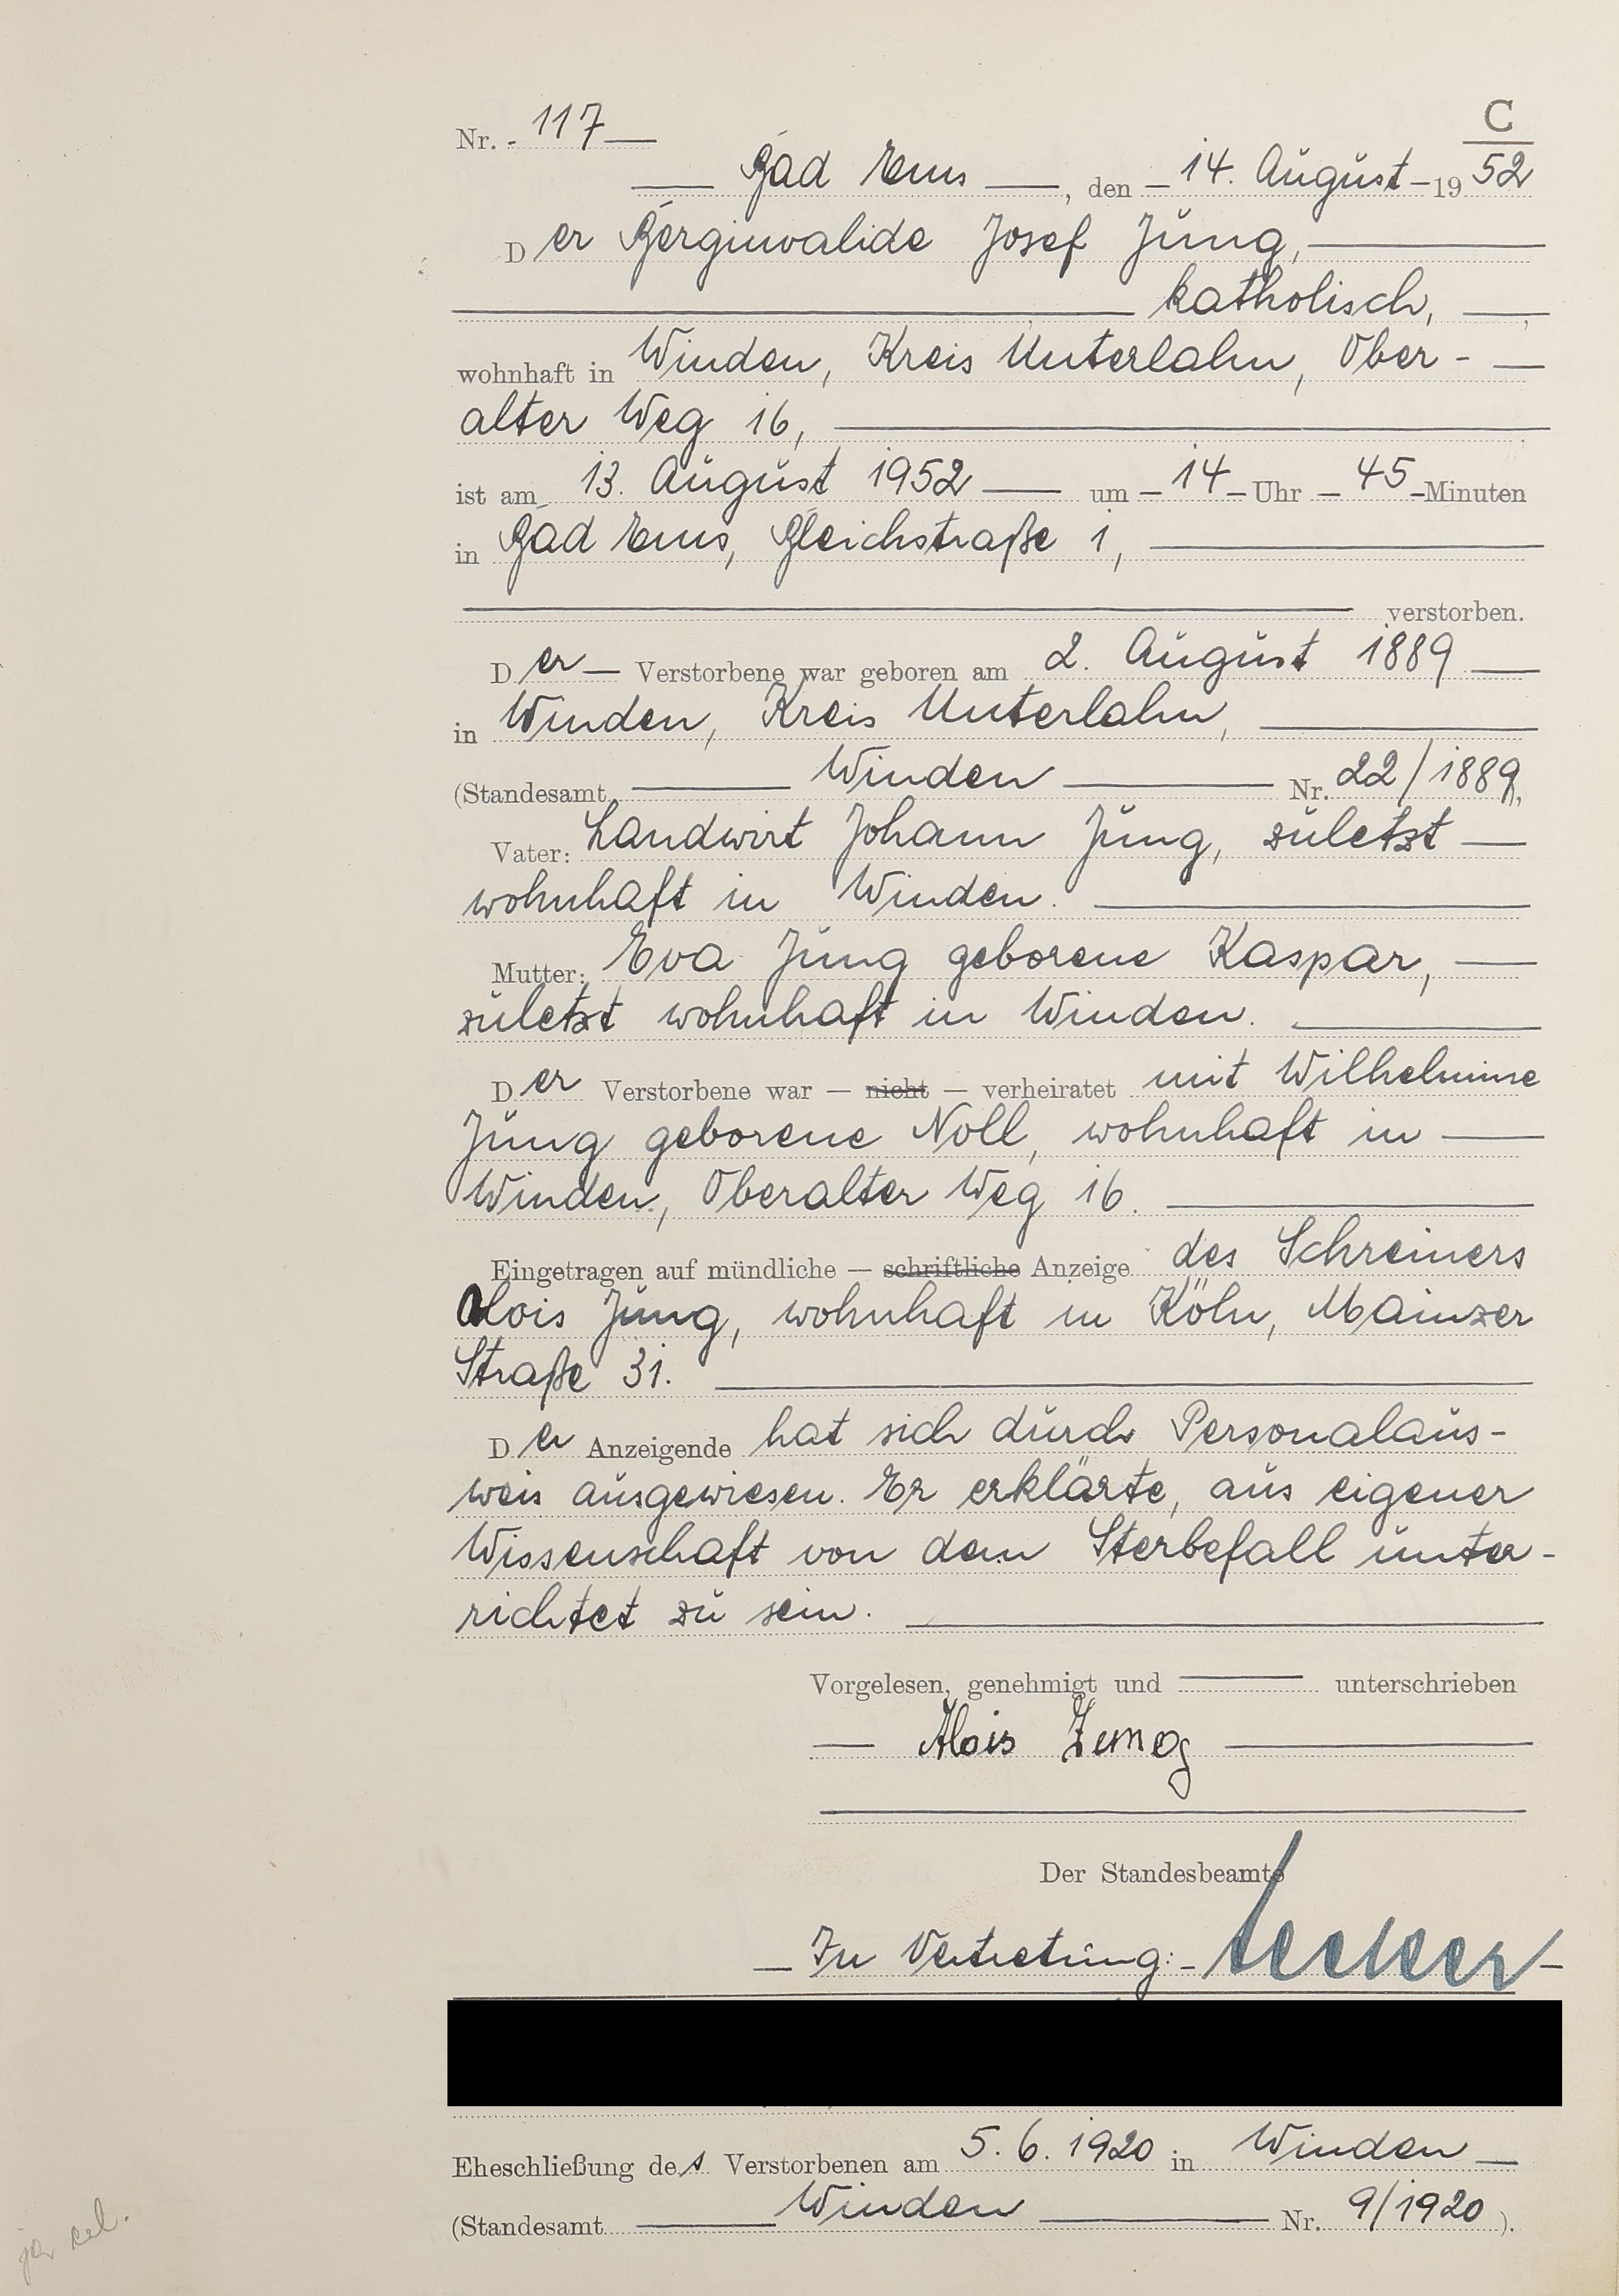 C
Nr. - 117 —
— Bad Ems —, den — 14. August — 19 52
D er Berginvalide Josef Jung, —
— katholisch, —
wohnhaft in Winden, Kreis Unterlahn, Ober- —
alter Weg 16, —
ist am 13. August 1952 — um — 14 — Uhr — 45 — Minuten
in Bad Ems, Bleichstraße 1, —
— verstorben.
D er — Verstorbene war geboren am 2. August 1889 —
in Winden, Kreis Unterlahn, —
(Standesamt — Winden — Nr. 22/1889),
Vater: Landwirt Johann Jung, zuletzt —
wohnhaft in Winden. —
Mutter: Eva Jung geborene Kaspar, —
zuletzt wohnhaft in Winden. —
D er Verstorbene war — nicht — verheiratet mit Wilhelmine
Jung geborene Noll, wohnhaft in —
Winden, Oberalter Weg 16. —
Eingetragen auf mündliche — schriftliche Anzeige des Schreiners
Alois Jung, wohnhaft in Köln, Mainzer
Straße 31. —
D er Anzeigende hat sich durch Personalaus-
weis ausgewiesen. Er erklärte, aus eigener
Wissenschaft von dem Sterbefall unter-
richtet zu sein. —
Vorgelesen, genehmigt und — unterschrieben
— Alois Jung —
Der Standesbeamte
— In Vertretung: —
Eheschließung des Verstorbenen am 5.6.1920 in Winden —
(Standesamt — Winden — Nr. 9/1920 ).